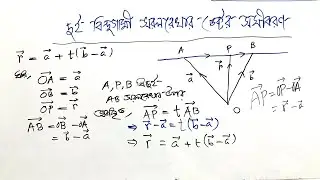 দুই বিন্দুগামী সরলরেখার ভেক্টর সমীকরণ
r⃗ = a⃗ + t(b⃗ - a⃗)
A P B
a⃗ r⃗ b⃗
O
OA⃗ = a⃗
OB⃗ = b⃗
OP⃗ = r⃗
AB⃗ = OB⃗ - OA⃗
= b⃗ - a⃗
A, P, B বিন্দু
AB সরলরেখার উপর
AP⃗ = t AB⃗
⇒ r⃗ - a⃗ = t(b⃗ - a⃗)
⇒ r⃗ = a⃗ + t(b⃗ - a⃗)
AP⃗ = OP⃗ - OA⃗
= r⃗ - a⃗